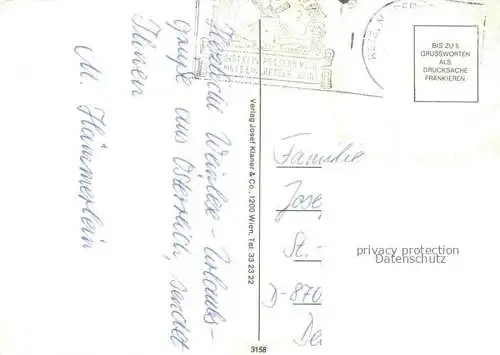 Herzliche Weinlese-Urlaubs-
grüße aus Österreich, sendet
Ihnen
M. Hämmerlein
Verlag Josef Klaner & Co., 1200 Wien, Tel. 33 23 22
3158
BIS ZU 5
GRUSSWORTEN
ALS
DRUCKSACHE
FRANKIEREN
Familie
Jose
St. -
D-870
privacy protection
Datenschutz